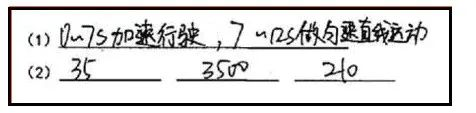 (1) 0~7s加速行驶，7~12s做匀速直线运动
(2) 35 3500 210